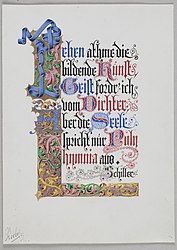 Leben athme die
bildende Kunst
Geist fordr' ich
vom Dichter
Aber die Seele
spricht nur Poly
hymnia aus.
Schiller